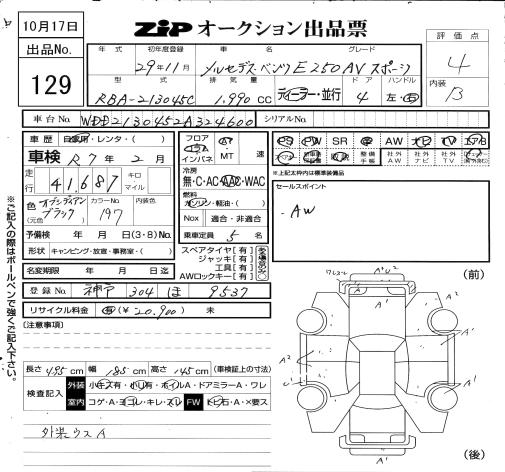 10月17日
ZIP オークション出品票
出品No.
129
年式 初年度登録 車名 グレード
29年11月 メルセデスベンツ E250 AV スポーツ
型式 排気量 ドア ハンドル
RBA-213045C 1.990 CC ディーラー・並行 4 左・右
評価点
4
内装
B
車台No. WDD2130452A324600 シリアルNo.
車歴 自家用・レンタ・( )
車検 R7年 2月
走行 41,687 キロ マイル
色 (元色) オブシディアンブラック カラーNo. 197 内装色
予備検 年 月 日(3・8) No.
形状 キャンピング・放宣・事務室・( )
名変期限 年 月 日迄
フロア コラム インパネ AT MT 速
冷房
無・C・AC・AAC・WAC
燃料
ガソリン・軽油・( )
Nox 適合・非適合
乗車定員 5 名
スペアタイヤ[有]
ジャッキ[有]
工具[有]
AWロックキー[有]
PS PW SR 革 AW ナビ TV エアB
整備手帳 社外AW 社外ナビ 社外TV
※上記太枠内は標準装備品
セールスポイント
・AW
登録No. 神戸 304 ほ 9537
リサイクル料金 有(¥20,900) 未
(注意事項)
長さ 495 cm 幅 185 cm 高さ 145 cm (車検証上の寸法)
検査記入 外装 小キズ有・小凹有・ホイルA・ドアミラーA・ワレ
室内 コゲ・A・ヨゴレ・キレ・スレ FW トビ石・A・×要ス
外装ウスA
※ご記入の際はボールペンで強くご記入下さい。
(前)
ワレコミ A'U2
A' A'
A2 A'
A2 A'
(後)